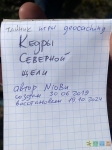 тайник игры geocaching
Кедры
Северной
щели
автор NioBi
создан 30.06.2019
восстановлен 19.10.2024